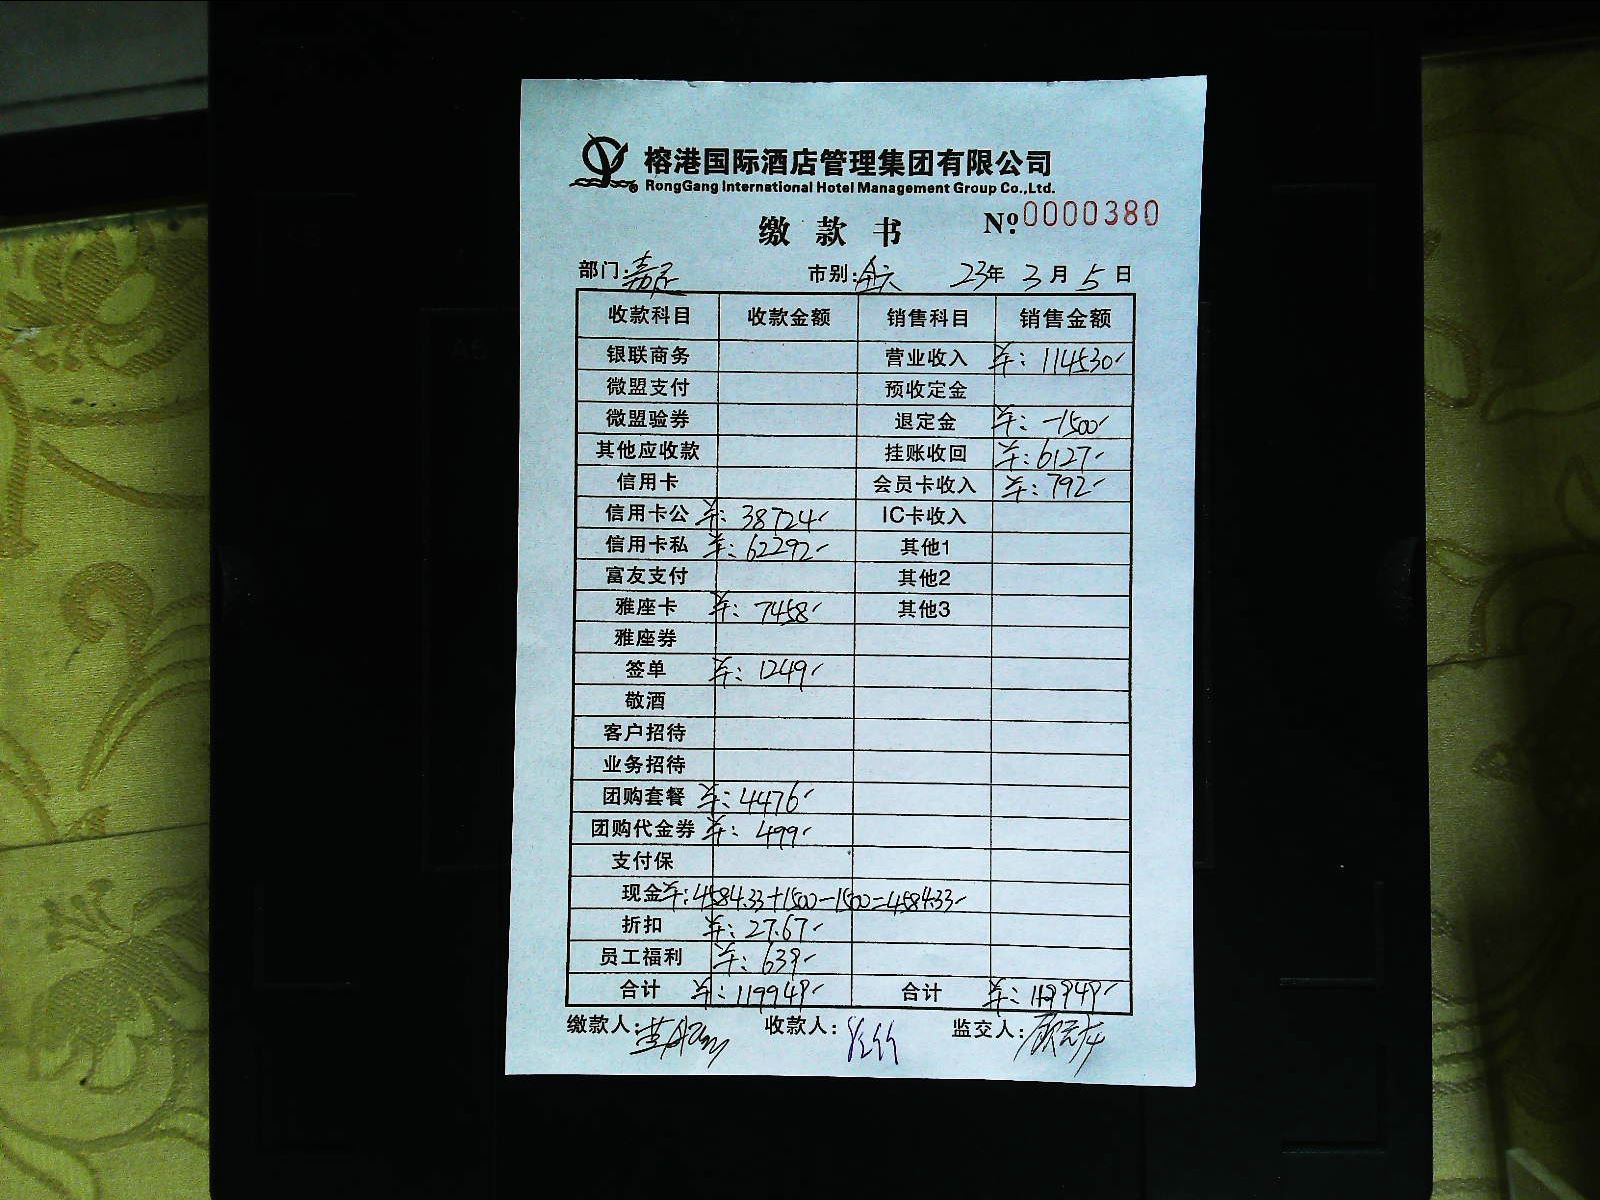 榕港国际酒店管理集团有限公司
RongGang International Hotel Management Group Co.,Ltd.
缴款书 Nº 0000380
部门: 市别: 23年 3月 5日
收款科目 收款金额 销售科目 销售金额
银联商务 营业收入 ¥: 114530
微盟支付 预收定金
微盟验券 退定金 ¥: -1500
其他应收款 挂账收回 ¥: 6127
信用卡 会员卡收入 ¥: 792
信用卡公 ¥: 38724 IC卡收入
信用卡私 ¥: 62292 其他1
富友支付 其他2
雅座卡 ¥: 7458 其他3
雅座券
签单 ¥: 1249
敬酒
客户招待
业务招待
团购套餐 ¥: 4476
团购代金券 ¥: 499
支付保
现金 ¥: 4584.33+1500-1500=4584.33
折扣 ¥: 27.67
员工福利 ¥: 639
合计 ¥: 119949 合计 ¥: 119949
缴款人: 收款人: 监交人: